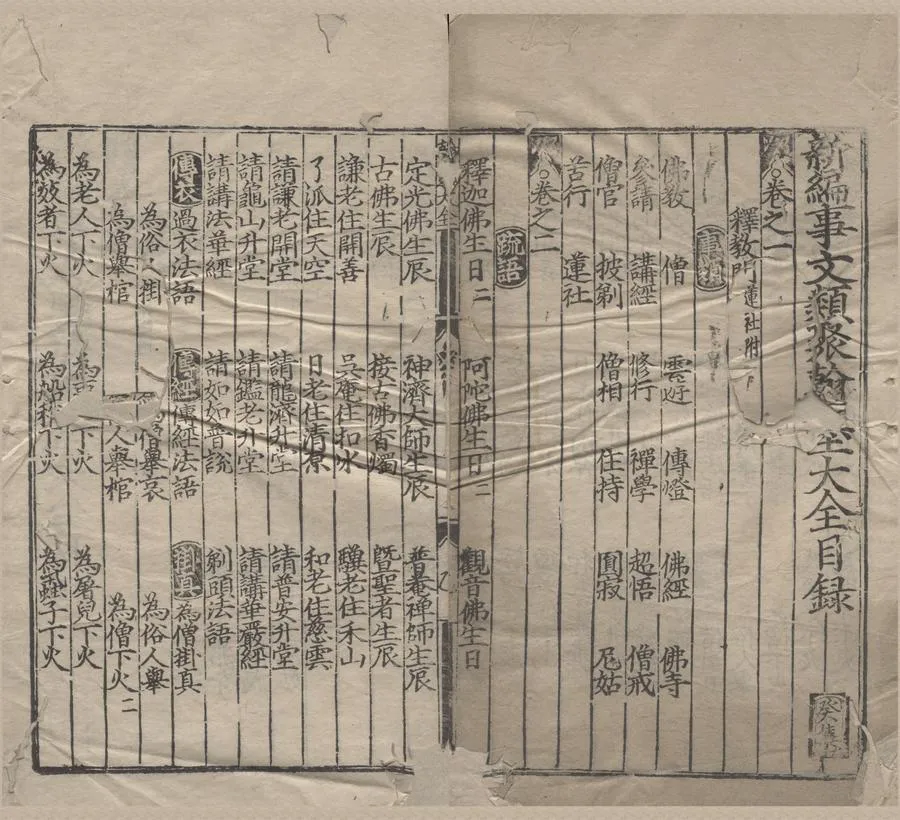 新編事文類聚翰墨大全目録 癸集
。卷之一
釋教門 蓮社附
佛教 僧 雲遊 傳燈 佛經 佛寺
參請 講經 修行 禪學 超悟 僧戒
僧官 披剃 僧相 住持 圓寂 尼姑
苦行 蓮社
。卷之二
疏語
釋迦佛生日二 阿陀佛生日二 觀音佛生日
定光佛生辰 神濟大師生辰 普菴禪師生辰
古佛生辰 接古佛香燭 暨聖者生辰
謙老住開善 吳庵住扣氷 驥老住禾山
了派住天空 日老住清 和老住慈雲
請謙老開堂 請龍濟升堂 請普安升堂
請龜山升堂 請鑑老升堂 請講華嚴經
請講法華經 請如如普説 剃頭法語
傳衣 過衣法語 傳經 傳經法語 掛真 為僧掛真
為俗人掛 僧舉哀 為俗人舉
為僧舉棺 人舉棺 為僧下火二
為老人下火 為 下火 為屠兒下火
為效者下火 為船 下火 為 子下火